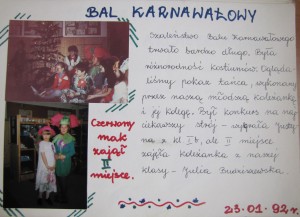 BAL KARNAWAŁOWY
Szaleństwo Balu Karnawałowego
trwało bardzo długo. Była
różnorodność kostiumów. Ogląda-
liśmy pokaz tańca, wykonany
przez naszą młodszą koleżankę
i jej kolegę. Był konkurs na naj-
ciekawszy strój - wygrała
z kl. I b, ale II miejsce
zajęła koleżanka z naszej
klasy - Julia
Czerwony
mak
zajął
II
miejsce.
25.01.92r.